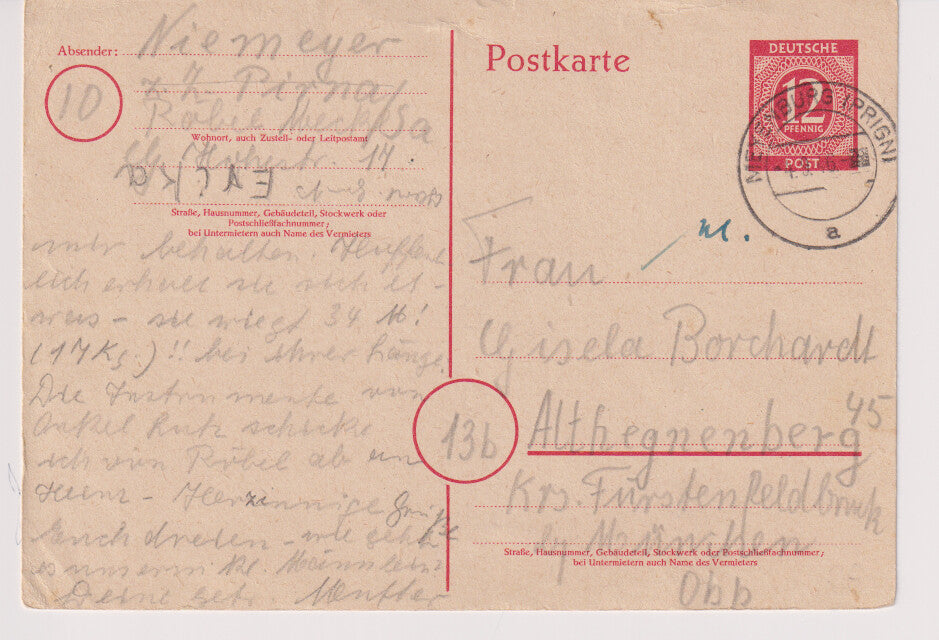 Absender: Niemeyer
10
z. Z. Pirna/
Röbel Meckl/Sa
Wohnort, auch Zustell- oder Leitpostamt
Hohestr. 14
Straße, Hausnummer, Gebäudeteil, Stockwerk oder
Postschließfachnummer;
bei Untermietern auch Name des Vermieters
mir behalten. Hoffent
lich erholt sie sich et-
was - sie wiegt 34 ℔!
(17 Kg.)!! bei ihrer Länge.
Die Instrumente von
Onkel Rutz schicke
ich von Röbel ab an
Heinz - Herzinnige Grüße
Euch dreien - wie geht
es unserm kl. Männlein
Deine getr. Mutter
Postkarte
DEUTSCHE
12
PFENNIG
POST
a
Frau
Gisela Borchardt
13b
Althegnenberg 45
Krs. Fürstenfeldbruck
b/ München
Straße, Hausnummer, Gebäudeteil, Stockwerk oder Postschließfachnummer;
bei Untermietern auch Name des Vermieters
Obb